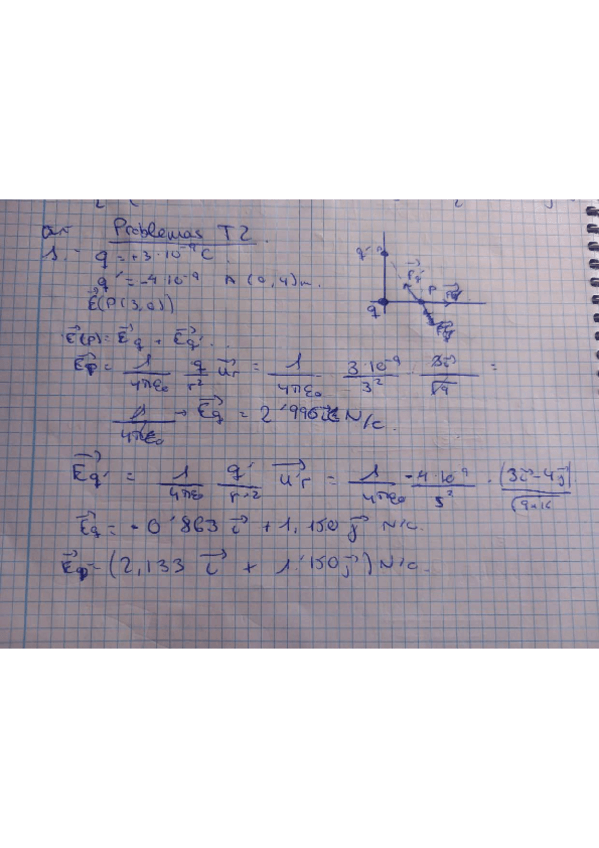 Problemas T2.
1.- q = +3·10⁻⁹ C.
q' = -4·10⁻⁹ A (0,4) m.
E⃗(P(3,0))
q'
r⃗'
P
q
E⃗(P) = E⃗q + E⃗q'.
E⃗p = 1/4πε₀ q/r² u⃗r = 1/4πε₀ · 3·10⁻⁹/3² · 3i⃗/√9 =
1/4πε₀ → E⃗q = 2'996 i⃗ N/C.
E⃗q' = 1/4πε₀ q'/r'² u⃗'r = 1/4πε₀ -4·10⁻⁹/5² · (3i⃗-4j⃗)/√9+16
E⃗q = -0'863 i⃗ + 1,150 j⃗ N/C.
E⃗p = (2,133 i⃗ + 1'150 j⃗) N/C.